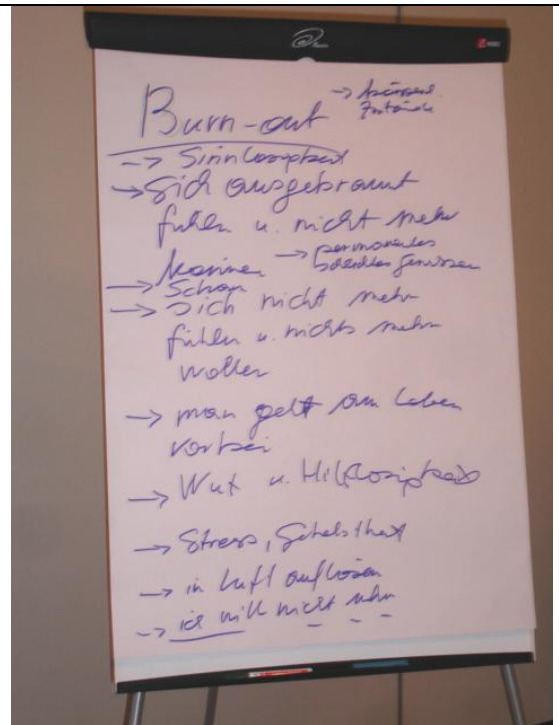 Burn-out
→ Zustände
→ Sinnlosigkeit
→ Sich ausgebrannt
fühlen u. nicht mehr
können → permanentes
schlechtes Gewissen
→ Scham
→ Sich nicht mehr
fühlen u. nichts mehr
wollen
→ man geht am Leben
vorbei
→ Wut u. Hilflosigkeit
→ Stress,
→ in Luft auflösen
→ ich will nicht mehr